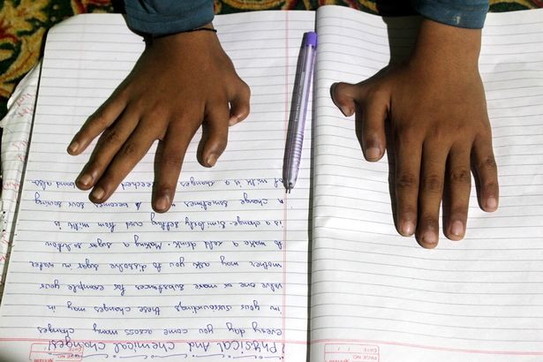 Physical And Chemical Changes!
every day you come across many changes
in your surroundings these changes may in
volve one or more substances for example your
mother may ask you to dissolve sugar in water
to make a cold drink. Making a sugar solution
is a change. Similarly setting curd from milk is
a change sometimes becomes sour Souring
of milk is a changes